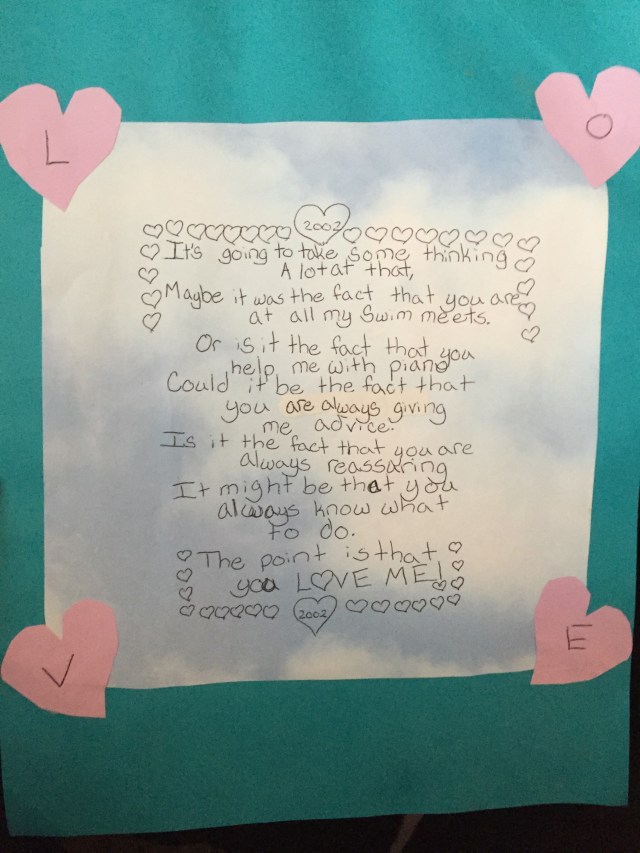 L
O
2002
It's going to take some thinking
A lot at that,
Maybe it was the fact that you are
at all my swim meets.
Or is it the fact that you
help me with piano
Could it be the fact that
you are always giving
me advice.
Is it the fact that you are
always reassaring
It might be that you
always know what
to do.
The point is that
you LOVE ME!
2002
V
E